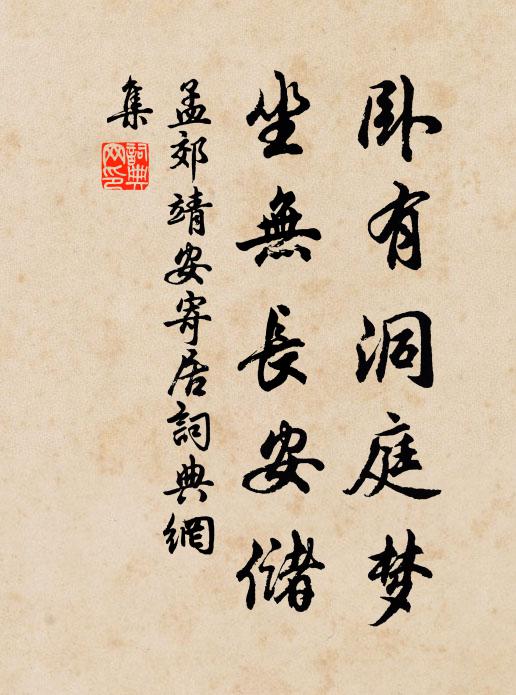 卧有洞庭梦
坐無長安儲
孟郊靖安寄居詞典網
集
詞典
网印